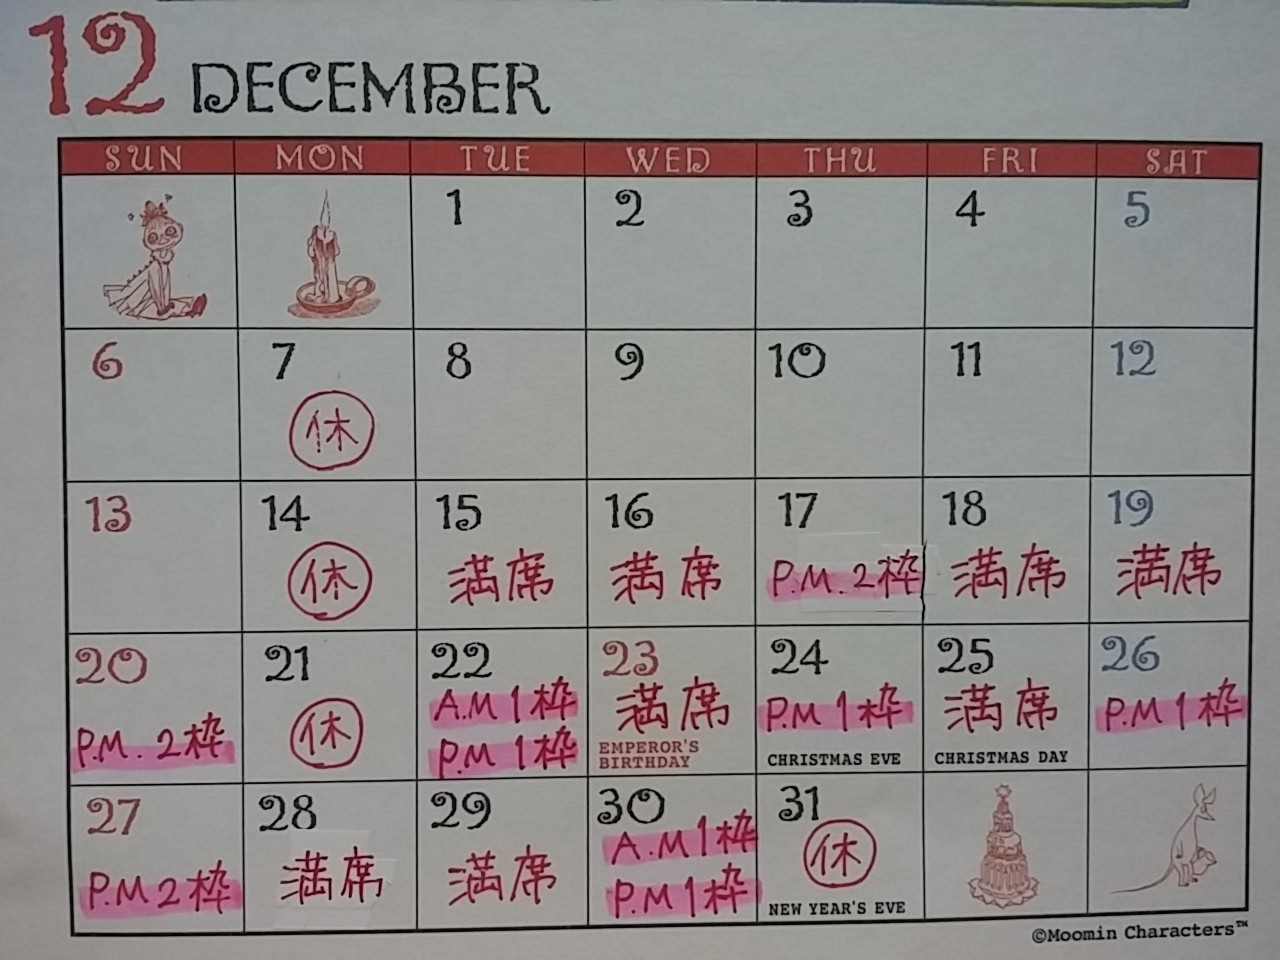 12 DECEMBER
SUN MON TUE WED THU FRI SAT
1 2 3 4 5
6 7 8 9 10 11 12
休
13 14 15 16 17 18 19
休 満席 満席 P.M.2枠 満席 満席
20 21 22 23 24 25 26
P.M.2枠 休 A.M1枠 満席 P.M1枠 満席 P.M1枠
P.M1枠 EMPEROR'S
BIRTHDAY CHRISTMAS EVE CHRISTMAS DAY
27 28 29 30 31
P.M2枠 満席 満席 A.M1枠 休
P.M1枠 NEW YEAR'S EVE
©Moomin Characters™